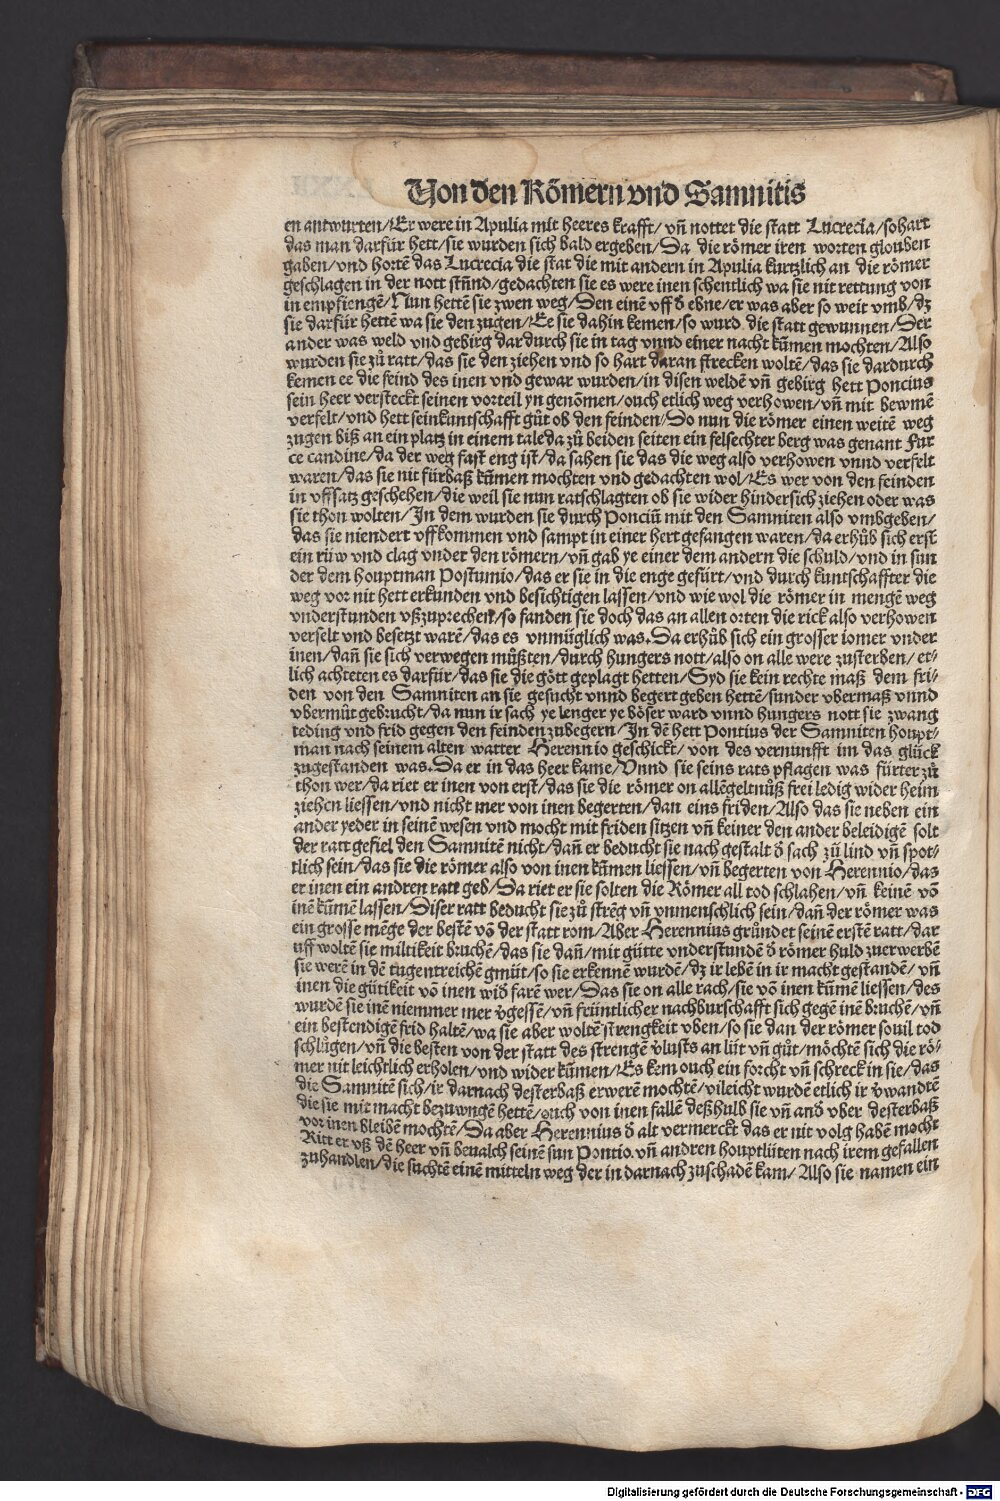 Von den Römern vnd Samnitis
en antwurten/Er were in Apulia mit heeres krafft/ vn̄ nottet die statt Lucrecia/so hart
das man darfür hett/sie wurden sich bald ergeben/Da die römer iren worten glouben
gaben/vnd hortē das Lucrecia die stat die mit andern in Apulia kurtzlich an die römer
geschlagen in der nott stūnd/gedachten sie es were inen schentlich wa sie nit rettung von
in empfiengē/Nun hettē sie zwen weg/Den einē vff d̄ ebne/er was aber so weit vmb/dz
sie darfür hettē wa sie den zugen/Ee sie dahin kemen/so wurd die statt gewunnen/Der
ander was weld vnd gebirg dardurch sie in tag vnnd einer nacht kūmen mochten/Also
wurden sie zů ratt/das sie den ziehen vnd so hart daran strecken woltē/das sie dardurch
kemen ee die feind des inen vnd gewar wurden/in disen weldē vn̄ gebirg hett Poncius
sein heer versteckt seinen vorteil yn genōmen/ouch etlich weg verhowen/vn̄ mit bewmē
verfelt/vnd hett sein kuntschafft gůt ob den feinden/So nun die römer einen weitē weg
zugen biß an ein platz in einem tale da zů beiden seiten ein felsechter berg was genant Fur
ce candine/da der weg fast eng ist/da sahen sie das die weg also verhowen vnnd verfelt
waren/das sie nit fürbaß kūmen mochten vnd gedachten wol/Es wer von den feinden
in vffsatz geschehen/die weil sie nun ratschlagten ob sie wider hindersich ziehen oder was
sie thon wolten/In dem wurden sie durch Ponciū mit den Samniten also vmbgeben/
das sie niendert vffkommen vnd sampt in einer hert gefangen waren/da erhůb sich erst
ein rüw vnd clag vnder den römern/vn̄ gab ye einer dem andern die schuld/vnd in sun
der dem houptman Postumio/das er sie in die enge gefürt/vnd durch kuntschaffter die
weg vor nit hett erkunden vnd besichtigen lassen/vnd wie wol die römer in mengē weg
vnderstunden vßzuprechen/so fanden sie doch das an allen orten die rick also verhowen
verselt vnd besetzt warē/das es vnmüglich was. Da erhůb sich ein grosser iomer vnder
inen/dan̄ sie sich verwegen můßten/durch hungers nott/also on alle were zusterben/ et⸗
lich achteten es darfür/das sie die gött geplagt hetten/Syd sie kein rechte maß dem fri⸗
den von den Samniten an sie gesucht vnnd begert geben hettē/sunder vbermaß vnnd
vbermůt gebrucht/da nun ir sach ye lenger ye böser ward vnnd hungers nott sie zwang
teding vnd frid gegen den feinden zubegern/In dē hett Pontius der Samniten houpt⸗
man nach seinem alten watter Herennio geschickt/ von des vernunfft im das glück
zugestanden was. Da er in das heer kame/Vnnd sie seins rats pflagen was fürter zů
thon wer/da riet er inen von erst/das sie die römer on allēgeltnůß frei ledig wider heim
ziehen liessen/vnd nicht mer von inen begerten/dan eins friden/Also das sie neben ein
ander yeder in seinē wesen vnd mocht mit friden sitzen vn̄ keiner den ander beleidigē solt
der ratt gefiel den Samnitē nicht/dan̄ er beducht sie nach gestalt d̄ sach zů lind vn̄ spot⸗
tlich sein/das sie die römer also von inen kūmen liessen/vn̄ begerten von Herennio/das
er inen ein andren ratt geb/Da riet er sie solten die Römer all tod schlahen/vn̄ keinē vō
inē kūmē lassen/Diser ratt beducht sie zů strēg vn̄ vnmenschlich sein/dan̄ der römer was
ein grosse mēge der bestē vō der statt rom/Aber Herennius gründet seinē erstē ratt/dar
uff woltē sie miltikeit bruchē/das sie dan̄/mit gütte vnderstundē d̄ römer huld zuerwerbē
sie werē in dē tugentreichē gmüt/so sie erkennē wurdē/dz ir lebē in ir macht gestandē/ vn̄
inen die gütikeit vō inen wid̄ farē wer/Das sie on alle rach/sie vō inen kūmē liessen/des
wurdē sie inē niemmer mer v̄gessē/vn̄ früntlicher nachburschafft sich gegē inē bruchē/vn̄
ein bestendigē frid haltē/wa sie aber woltē strengkeit vben/so sie dan der römer souil tod
schlůgen/vn̄ die besten von der statt des strengē v̄lusts an lüt vn̄ gůt/möchtē sich die rö⸗
mer nit leichtlich erholen/vnd wider kūmen/Es kem ouch ein forcht vn̄ schreck in sie/das
die Samnitē sich/ir darnach desterbaß erwerē mochtē/vileicht wurdē etlich ir v̄wandtē
die sie mit macht bezwungē hettē/ouch von inen fallē deßhulb sie vn̄ and̄ vber desterbaß
vor inen bleibē mochtē/Da aber Herennius d̄ alt vermerckt das er nit volg habē mocht
Ritt er vß dē heer vn̄ beualch seinē sun Pontio. vn̄ andren houptlüten nach irem gefallen
zuhandlen/die suchtē einē mitteln weg der in darnach zuschadē kam/ Also sie namen ein
Digitalisierung gefördert durch die Deutsche Forschungsgemeinschaft - DFG